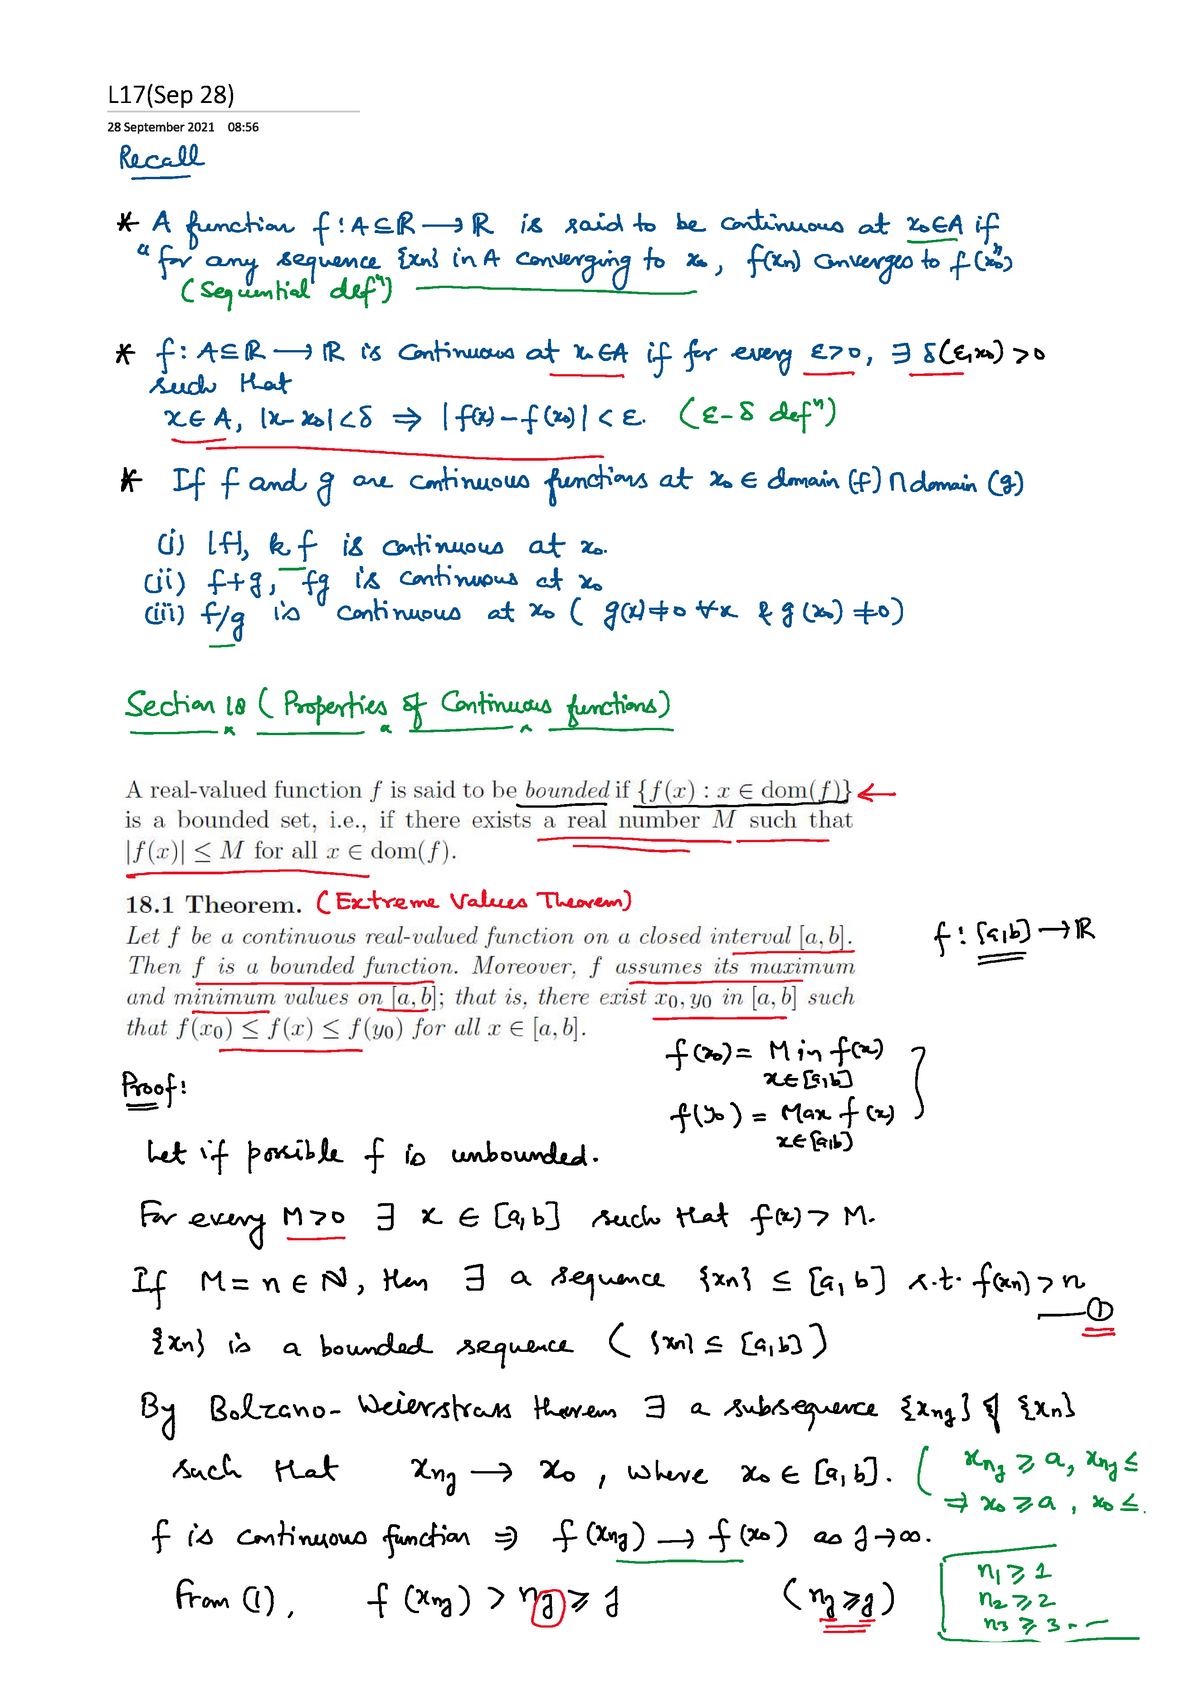 L17(Sep 28)
28 September 2021 08:56
Recall
* A function f : A ⊆ R → R is said to be continuous at x₀ ∈ A if
"for any sequence {xn} in A converging to x₀, f(xn) converges to f(x₀)"
(Sequential defⁿ)
* f : A ⊆ R → R is continuous at x₀ ∈ A if for every ε > 0, ∃ δ(ε, x₀) > 0
such that
x ∈ A, |x - x₀| < δ ⇒ |f(x) - f(x₀)| < ε. (ε-δ defⁿ)
* If f and g are continuous functions at x₀ ∈ domain (f) ∩ domain (g)
(i) |f|, k f is continuous at x₀.
(ii) f+g, fg is continuous at x₀
(iii) f/g is continuous at x₀ ( g(x) ≠ 0 ∀x & g(x₀) ≠ 0)
Section 18 ( Properties of Continuous functions)
A real-valued function f is said to be bounded if {f(x) : x ∈ dom(f)} ←
is a bounded set, i.e., if there exists a real number M such that
|f(x)| ≤ M for all x ∈ dom(f).
18.1 Theorem. (Extreme Values Theorem)
Let f be a continuous real-valued function on a closed interval [a, b].
f : [a,b] → R
Then f is a bounded function. Moreover, f assumes its maximum
and minimum values on [a, b]; that is, there exist x₀, y₀ in [a, b] such
that f(x₀) ≤ f(x) ≤ f(y₀) for all x ∈ [a, b].
f(x₀) = Min f(x)
x ∈ [a,b]
Proof:
f(y₀) = Max f(x)
x ∈ [a,b]
Let if possible f is unbounded.
For every M > 0 ∃ x ∈ [a, b] such that f(x) > M.
If M = n ∈ N, then ∃ a sequence {xn} ⊆ [a, b] s.t. f(xn) > n
—①
{xn} is a bounded sequence ( {xn} ⊆ [a,b] )
By Bolzano-Weierstrass theorem ∃ a subsequence {xnj} of {xn}
such that xnj → x₀, where x₀ ∈ [a, b]. ( xnj ≥ a, xnj ≤
⇒ x₀ ≥ a, x₀ ≤.
f is continuous function ⇒ f(xnj) → f(x₀) as j → ∞.
From (1), f(xnj) > nj ≥ j (nj ≥ j)
n₁ ≥ 1
n₂ ≥ 2
n₃ ≥ 3 - -